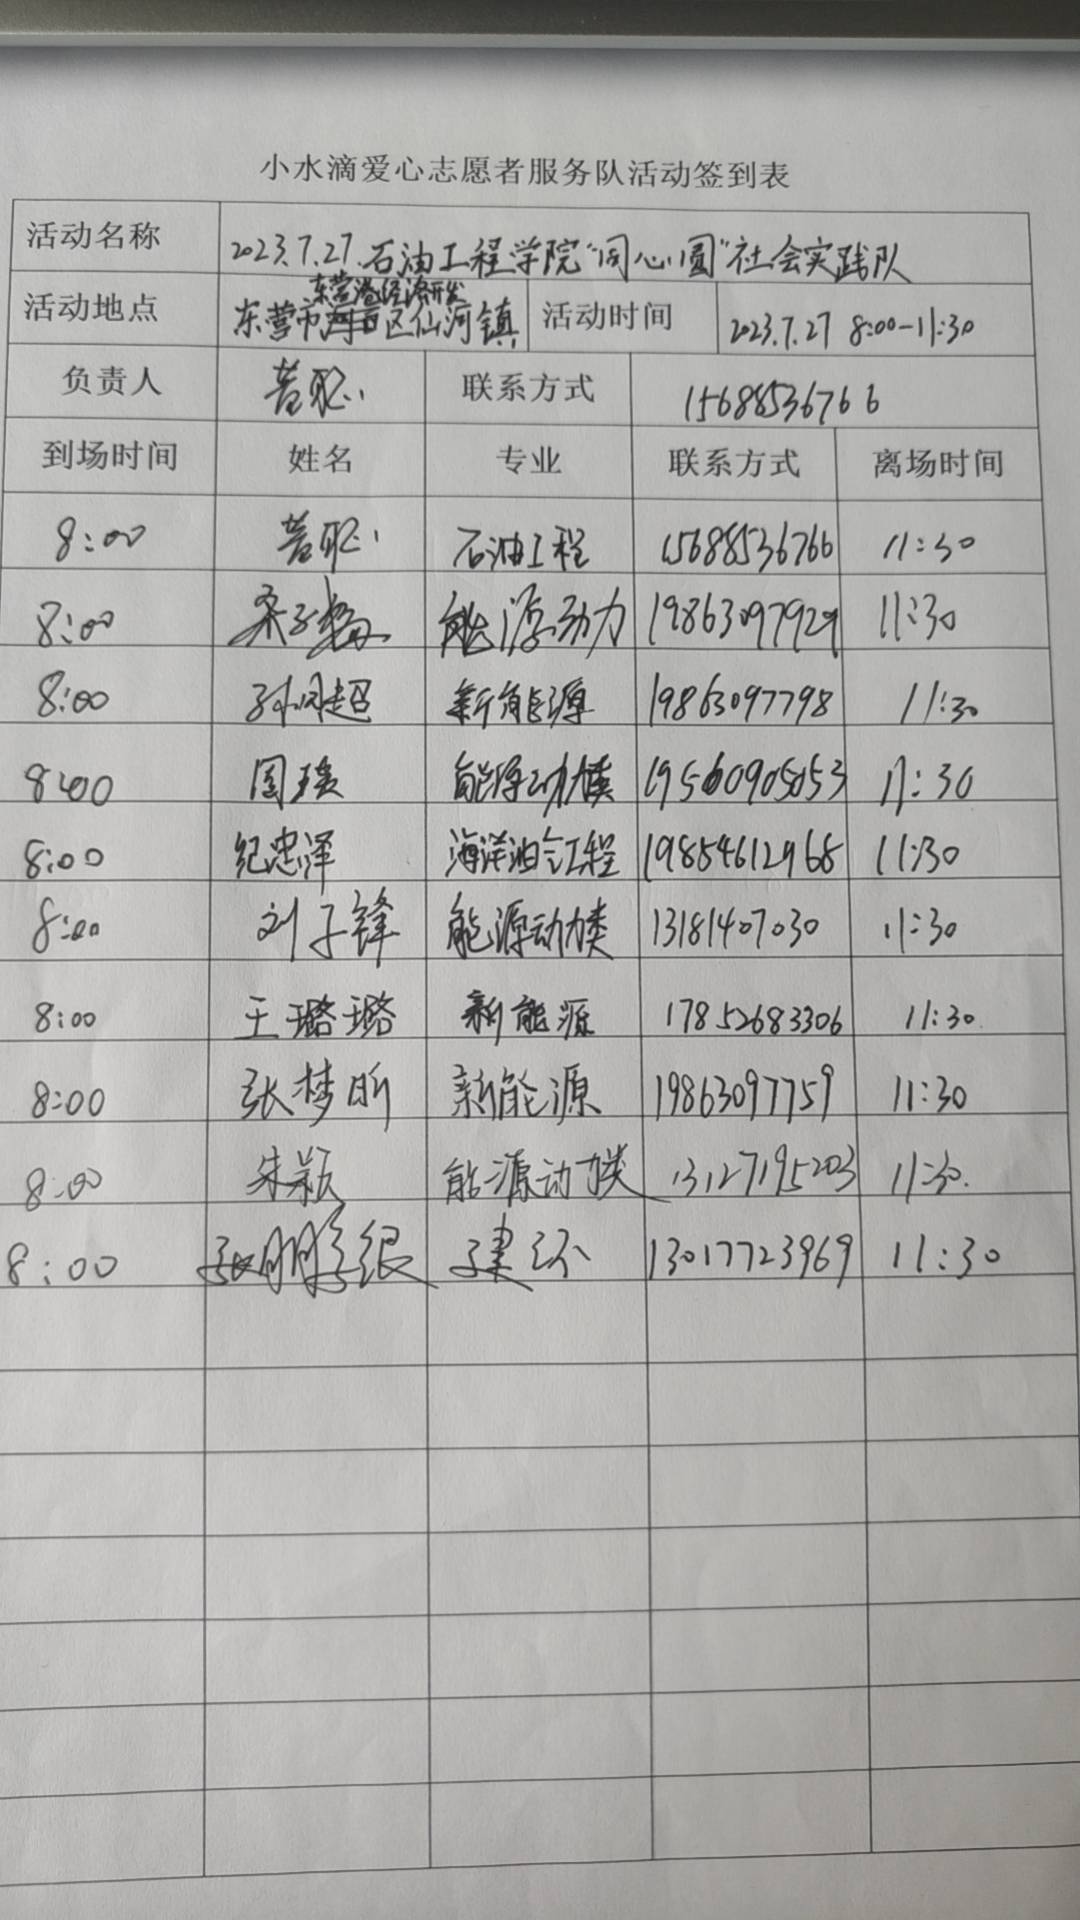 小水滴爱心志愿者服务队活动签到表
活动名称 2023.7.27.石油工程学院"同心圆"社会实践队
东营港经济开发
活动地点 东营市河口区仙河镇 活动时间 2023.7.27 8:00-11:30
负责人 聪 联系方式 15688536766
到场时间 姓名 专业 联系方式 离场时间
8:00 聪 石油工程 15688536766 11:30
8:00 能源动力 19863097929 11:30
8:00 孙同超 新能源 19863097798 11:30
8:00 周瑛 能源动力类 19560905053 11:30
8:00 纪忠泽 海洋油气工程 19854612968 11:30
8:00 刘子锋 能源动力类 13181407030 11:30
8:00 王璐璐 新能源 17852683306 11:30
8:00 张梦昕 新能源 19863097759 11:30
8:00 朱颖 能源动力类 13127195203 11:30
8:00 建环 13017723969 11:30